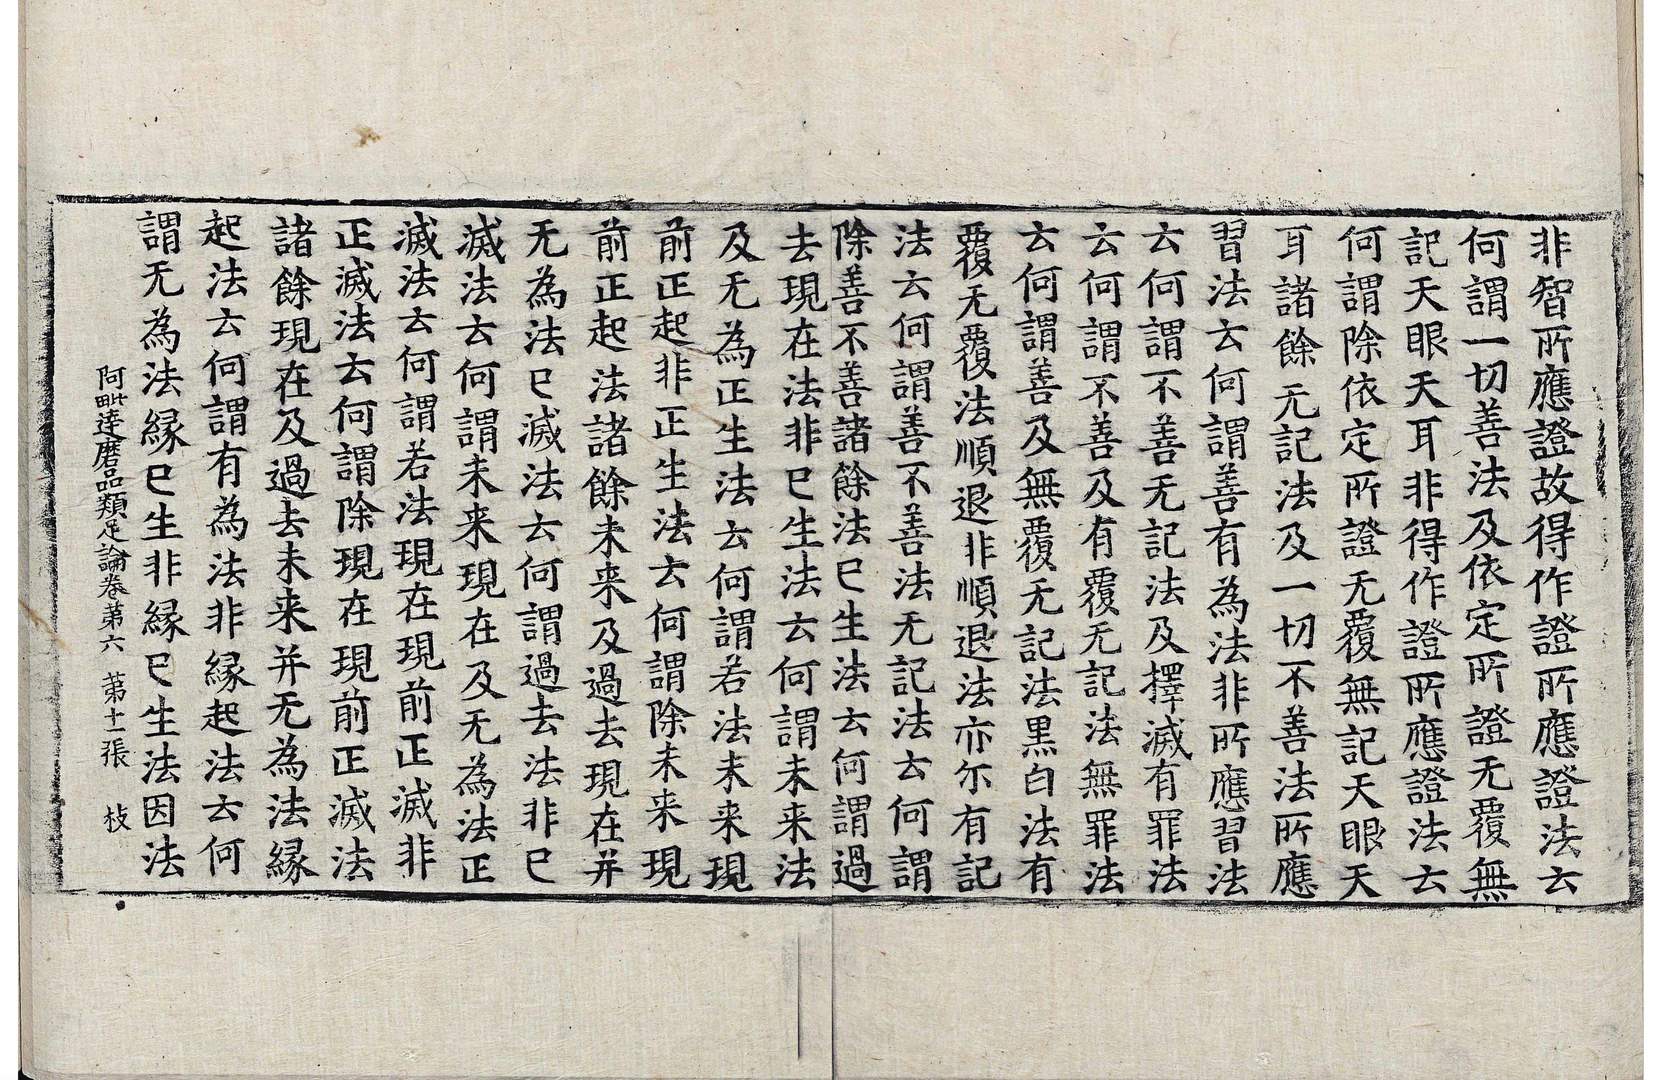 非智所應證故得作證所應證法云
何謂一切善法及依定所證无覆無
記天眼天耳非得作證所應證法云
何謂除依定所證无覆無記天眼天
耳諸餘无記法及一切不善法所應
習法云何謂善有為法非所應習法
云何謂不善无記法及擇滅有罪法
云何謂不善及有覆无記法無罪法
云何謂善及無覆无記法黑白法有
覆无覆法順退非順退法亦尒有記
法云何謂善不善法无記法云何謂
除善不善諸餘法已生法云何謂過
去現在法非已生法云何謂未来法
及无為正生法云何謂若法未来現
前正起非正生法云何謂除未来現
前正起法諸餘未来及過去現在并
无為法已滅法云何謂過去法非已
滅法云何謂未来現在及无為法正
滅法云何謂若法現在現前正滅非
正滅法云何謂除現在現前正滅法
諸餘現在及過去未来并无為法緣
起法云何謂有為法非緣起法云何
謂无為法緣已生非緣已生法因法
阿毗達磨品類足論卷第六 第十一張 枝